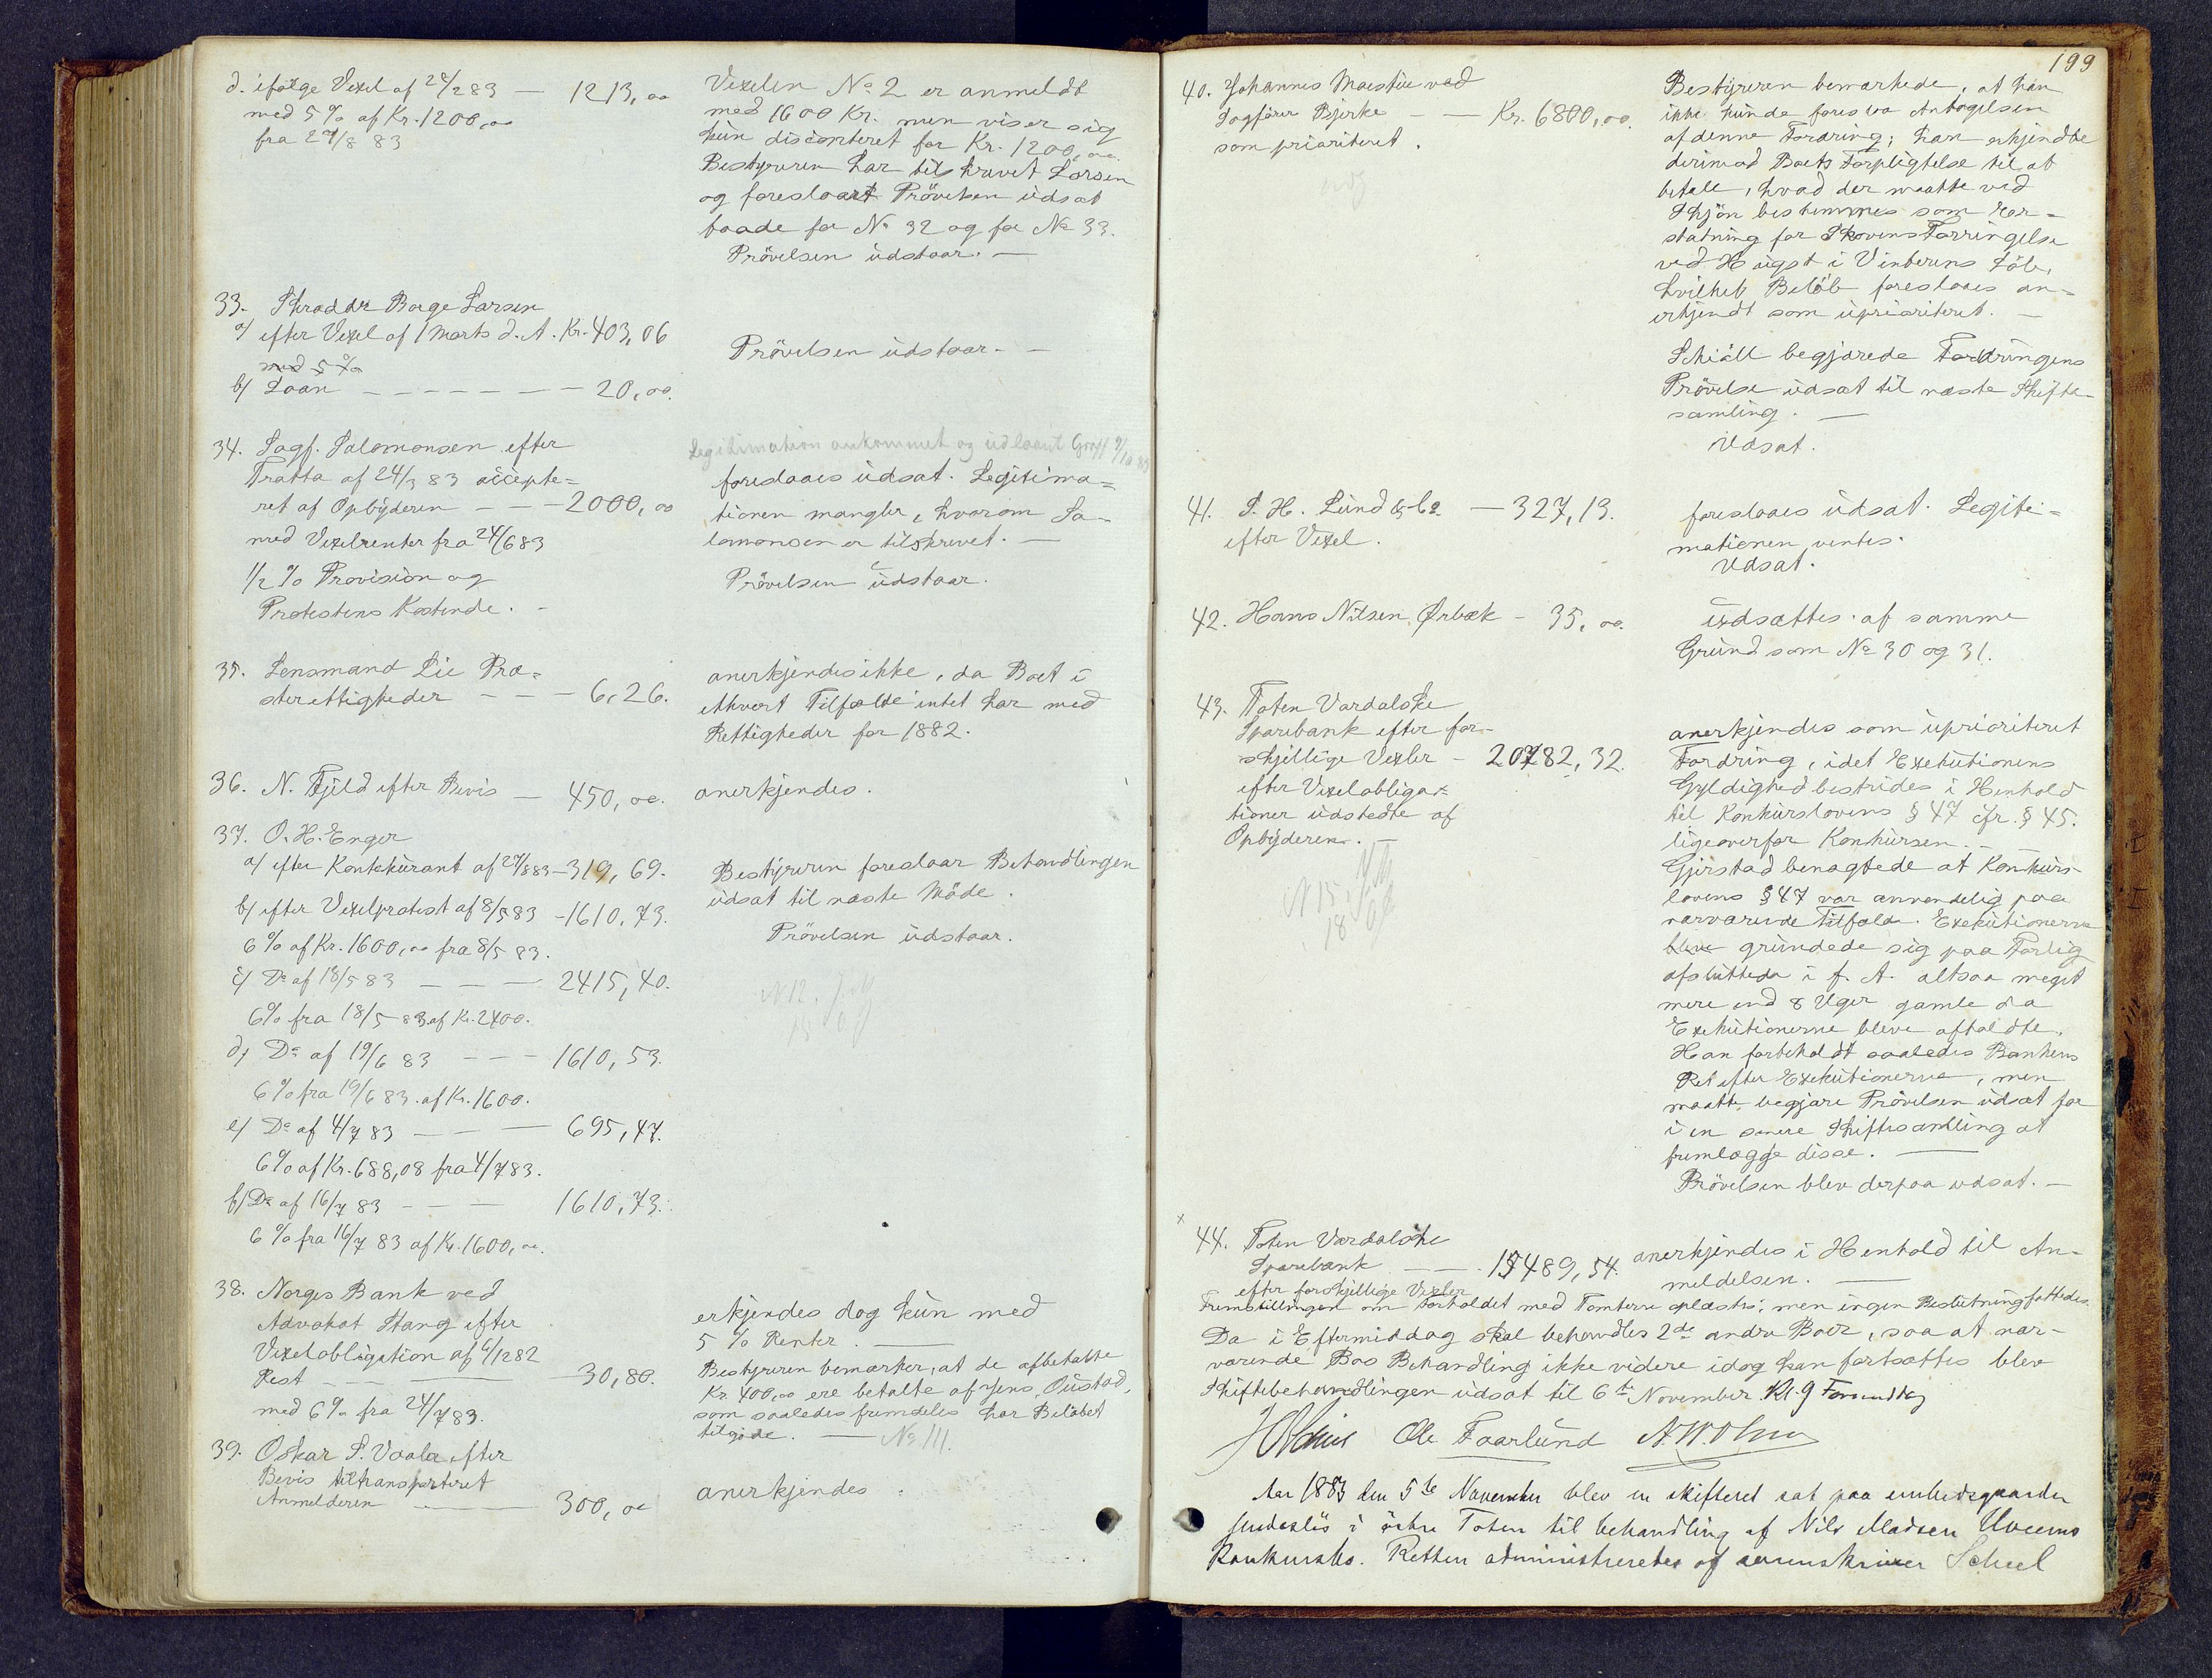 d. ifølge Vexel af 24/2 83 — 1213,00
med 5 % af Kr. 1200,00
fra 24/8 83
Vexelen No 2 er anmeldt
med 1600 Kr. men viser sig
kun disconteret for Kr. 1200,00.
Bestyreren har tilskrevet Larsen
og foreslaaet Prövelsen udsat
baade for No 32 og for No 33.
Prövelsen udstaar. —
33. Skrædder Borge Larsen
a/ efter Vexel af 1 Marts d. A. Kr. 403,06
med 5 %
b/ Laan — — — — — 20,00.
Prövelsen udstaar. —
34. Sagf. Salomonsen efter
Tratta af 24/3 83 accepte=
ret af Opbyderen — — — 2000,00
med Vexelrenter fra 24/6 83
1/2 % Provision og
Protestens Kostende. -
Legitimation ankommet og udlaant
foreslaaes udsat. Legitima=
tionen mangler, hvorom Sa-
lomonsen er tilskrevet. —
Prövelsen udstaar.
35. Lensmand Lie Præ=
sterettigheder — — — 6,26.
anerkjendes ikke, da Boet i
ethvert Tilfælde intet har med
Rettigheder for 1882.
36. N. Fjeld efter Bevis — 450,00.
anerkjendes.
37. O. H. Enger
a/ efter Kontokurant af 27/8 83 — 319,69.
b/ efter Vexelprotest af 8/5 83 - 1610,73.
6 % af Kr. 1600,00 fra 8/5 83.
c/ Do af 18/5 83 — — — 2415,40.
6 % fra 18/5 83 af Kr. 2400.
d/ Do af 19/6 83 — — - 1610,53.
6 % fra 19/6 83. af Kr. 1600.
e/ Do af 4/7 83 — — — 695,47.
6 % af Kr. 688,08 fra 4/7 83.
f/ Do af 16/7 83 — — — 1610,73.
6 % fra 16/7 83 af Kr. 1600,00.
Bestyreren foreslaar Behandlingen
udsat til næste Möde.
Prövelsen udstaar.
38. Norges Bank ved
Advokat Stang efter
Vexelobligation af 6/12 82
Rest — — — 30,80.
med 6 % fra 24/7 83.
erkjendes dog kun med
5 % Renter. —
Bestyreren bemærker, at de afbetalte
Kr. 400,00 ere betalte af Jens Oustad,
som saaledes fremdeles har Beløbet
tilgode. — No 111.
39. Oskar S. Vaaler efter
Bevis tiltransporteret
Anmelderen — — 300,00
anerkjendes.
199
40. Johannes Mæstue ved
Sagförer Bjerke — — Kr. 6800,00.
som prioriteret.
Bestyreren bemærkede, at han
ikke kunde foreslaa Antagelsen
af denne Fordring; han erkjendte
derimod Boets Forpligtelse til at
betale, hvad der maatte ved
Skjön bestemmes som Er-
statning for Skovens Forringelse
ved Hugst i Vinterens Löb,
hvilket Belöb foreslaaes an=
erkjendt som uprioriteret. —
Schiöll begjærede Fordringens
Prövelse udsat til næste Skifte-
samling. —
Udsat.
41. S. H. Lund & Co. — 327,13.
efter Vexel.
foreslaaes udsat. Legiti=
mationen ventes.
Udsat.
42. Hans Nilsen Ørbæk - 35,00.
udsættes af samme
Grund som No 30 og 31.
43. Toten Vardalske
Sparebank efter for-
skjellige Vexler - 20782,32.
efter Vexelobliga=
tioner udstedte af
Opbyderen. —
anerkjendes som uprioriteret
Fordring, idet Exekutionens
Gyldighed bestrides i Henhold
til Konkurslovens § 47 cfr. § 45.
ligeoverfor Konkursen. —
Gjerstad benægtede at Konkurs-
lovens § 47 var anvendelig paa
nærværende Tilfælde. Exekutionerne
bleve grundede sig paa Forlig
afsluttede i f. A. altsaa meget
mere end 8 Uger gamle da
Exekutionerne bleve afholdte.
Han forbeholdt saaledes Bankens
Ret efter Exekutionerne, men
maatte begjære Prövelsen udsat for
i en senere Skiftesamling at
fremlægge disse. —
Prövelsen blev derpaa udsat. —
x
44. Toten Vardalske
Sparebank — — 15489,54.
efter forskjellige Vexler
anerkjendes i Henhold til An-
meldelsen. —
Fremstillingen om Forholdet med Tomterne oplæstes; men ingen Beslutning fattedes.
Da i Eftermiddag skal behandles 2de andre Boer, saa at nær-
værende Bos Behandling ikke videre idag kan fortsættes blev
Skiftebehandlingen udsat til 6te November Kl. 9 Formiddag
Ole Faarlund
Aar 1883 den 5te November blev en skifteret sat paa embedsgaarden
i östre Toten til behandling af Nils Madsen
Konkursbo. Retten administreredes af sorenskriver Scheel